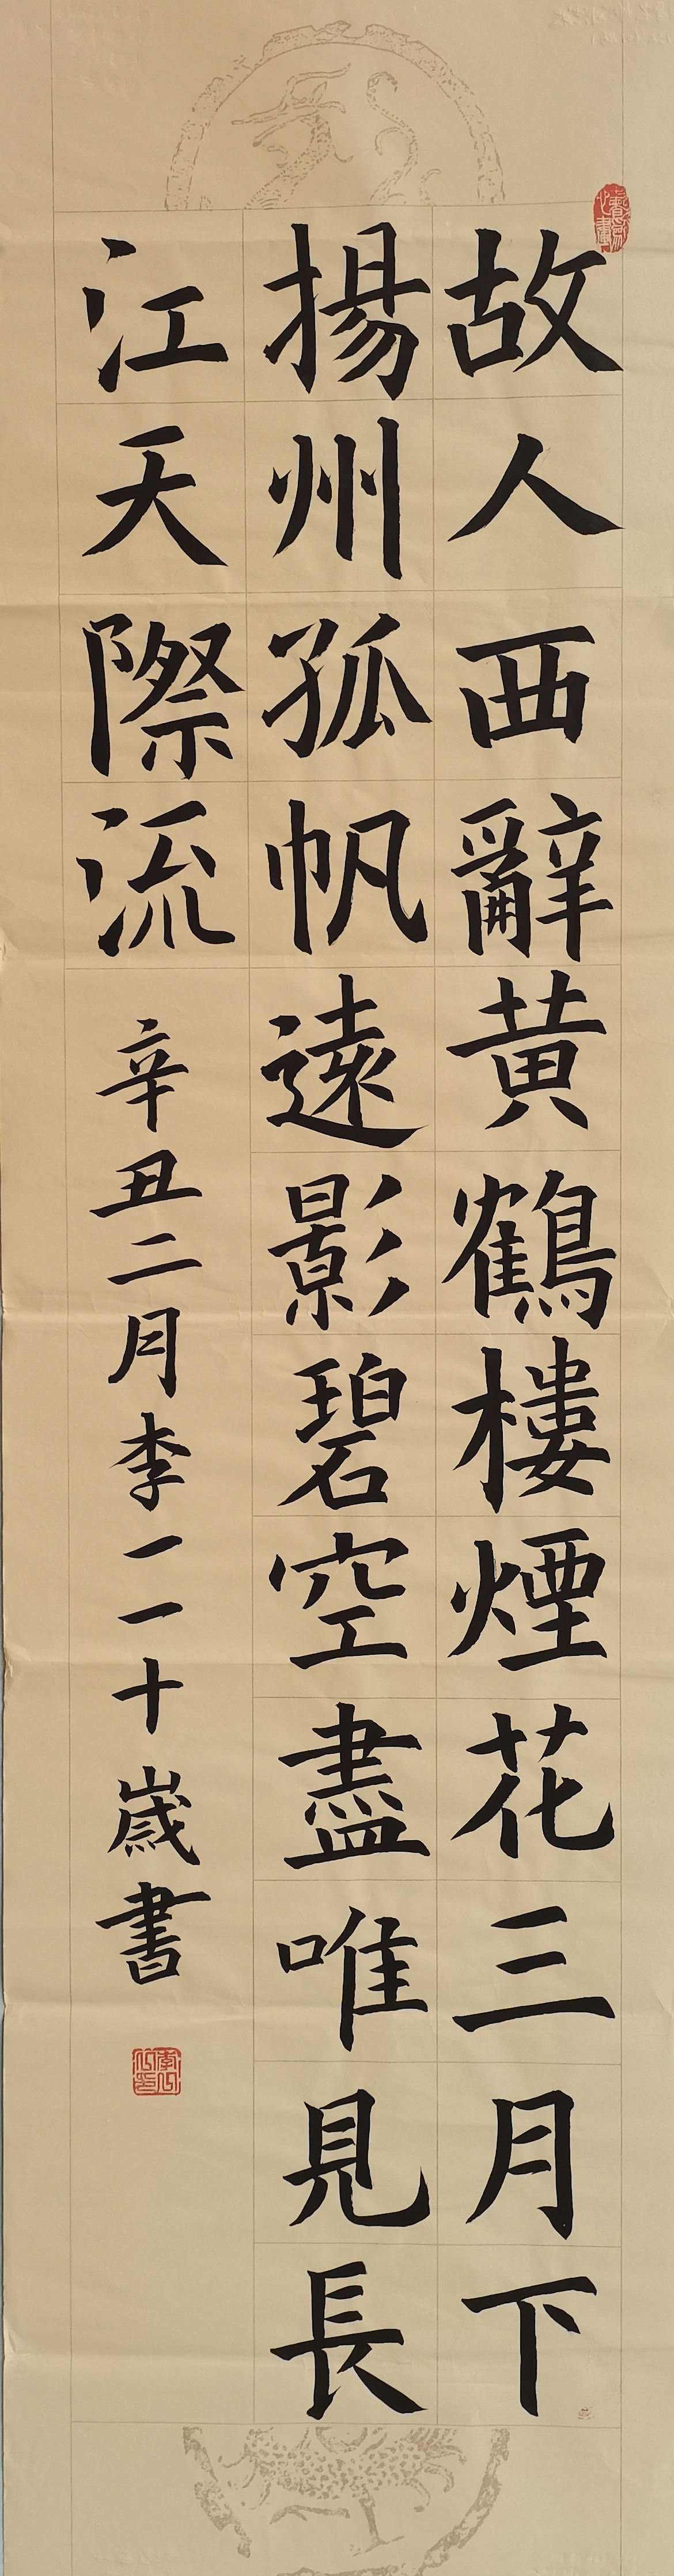 故人西辭黃鶴樓煙花三月下
揚州孤帆遠影碧空盡唯見長
江天際流
辛丑二月李一一十歲書